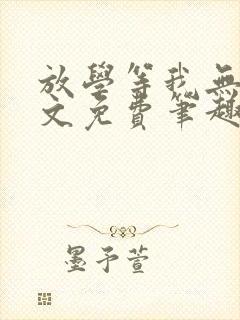 放學等我無
文免費筆趣
墨予萱